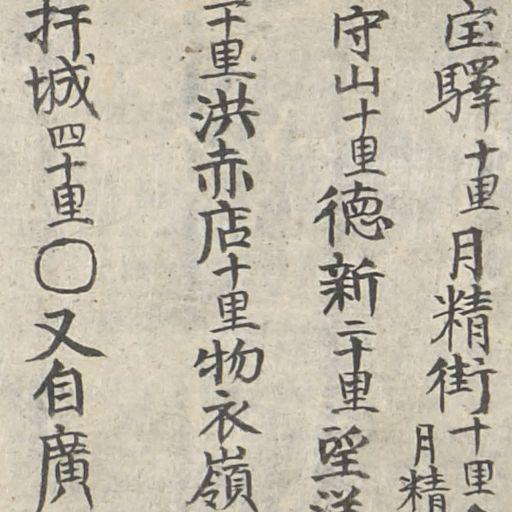 宝驛十里月精街十里
月精
守山十里德新二十里望洋
十里洪赤店十里物衣嶺
扞城四十里○又自廣